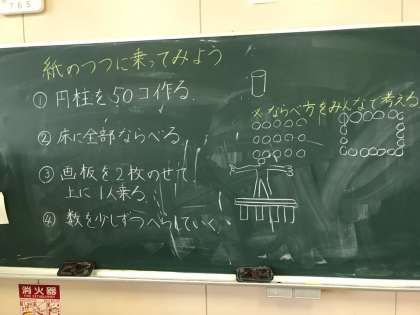 紙のつつに乗ってみよう
① 円柱を50コ作る
② 床に全部ならべる
③ 画板を2枚のせて
上に1人乗る
④ 数を少しずつへらしていく
※ならべ方をみんなで考える
消火器